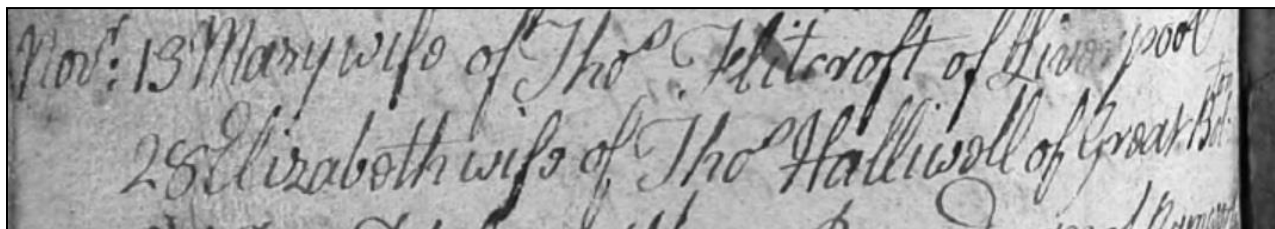 Novr: 13 Mary wife of Tho Flitcroft of Liverpool
28 Elizabeth wife of Tho Halliwell of Great Bolton